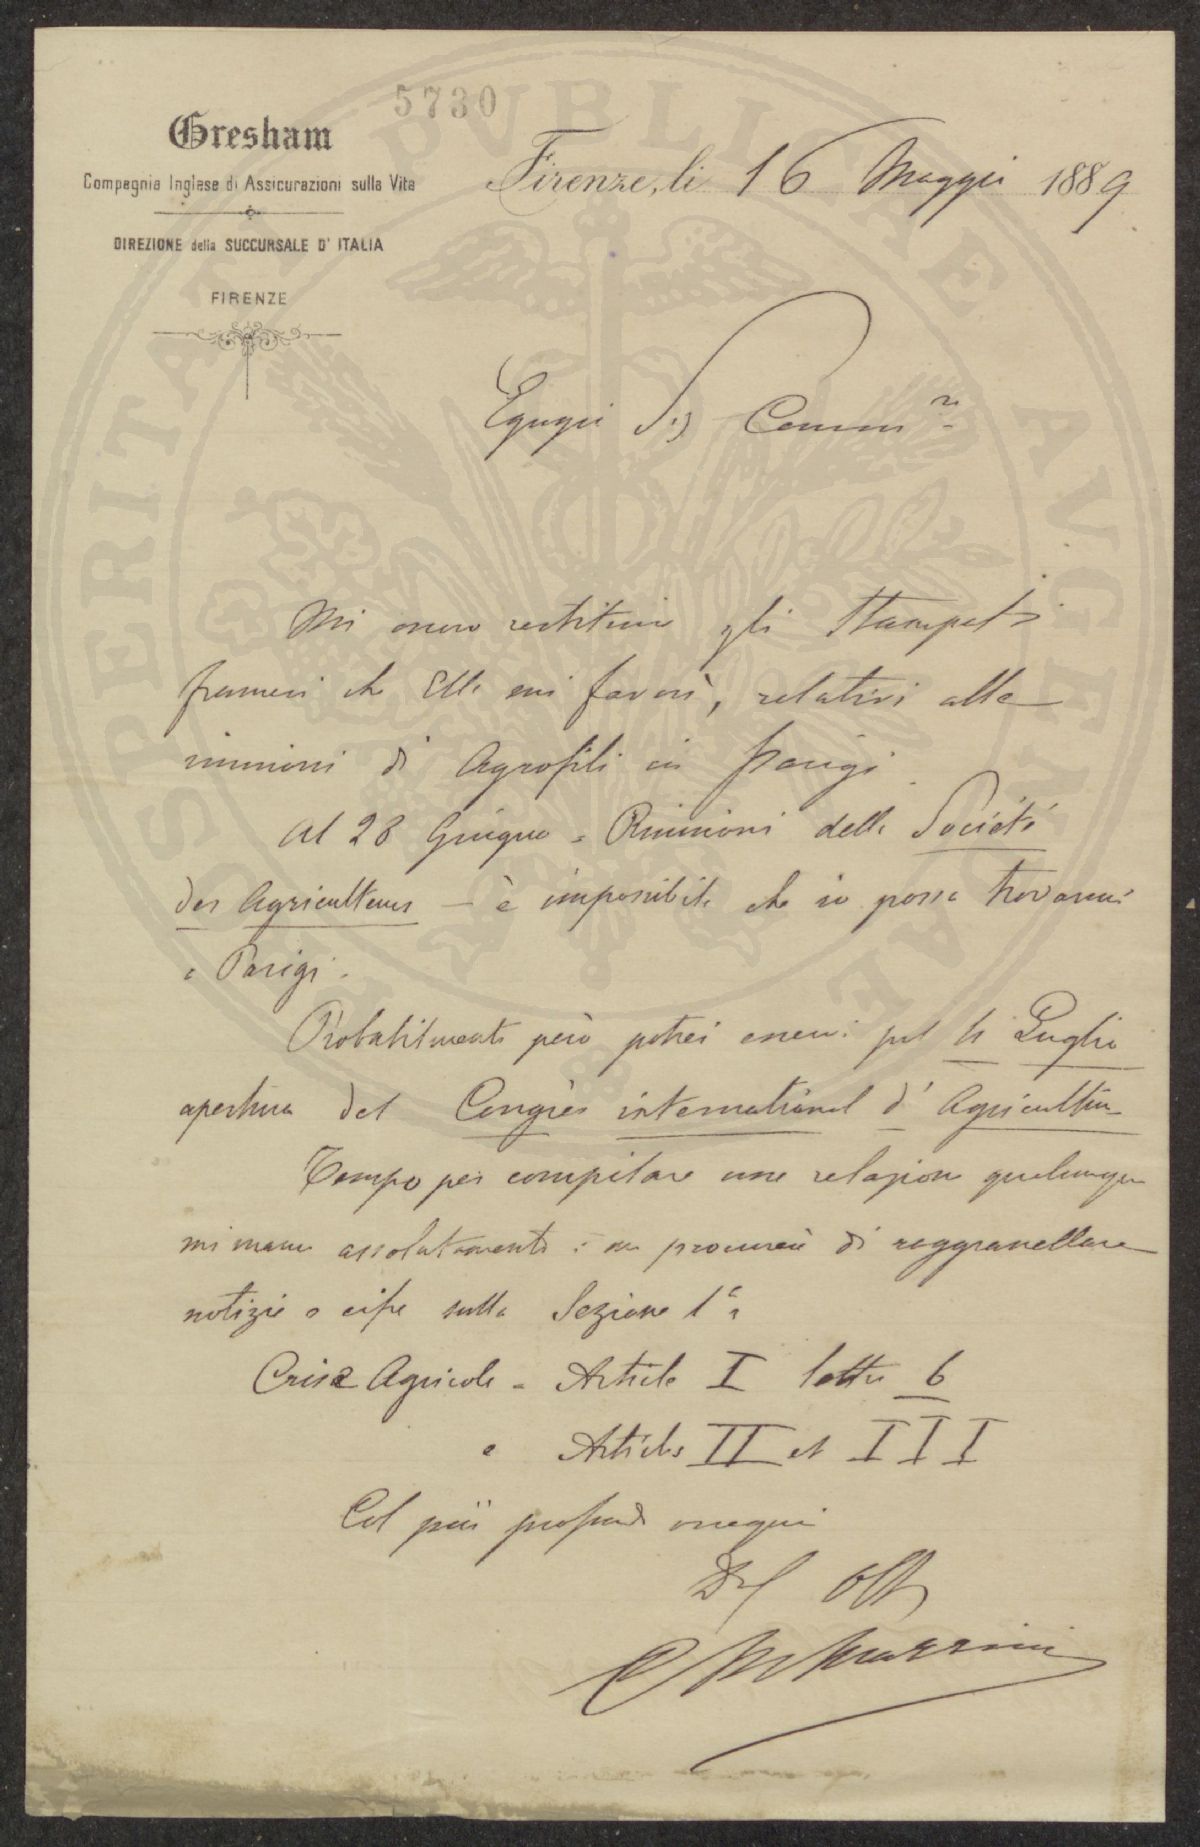 5730
Gresham
Compagnia Inglese di Assicurazioni sulla Vita
DIREZIONE della SUCCURSALE D' ITALIA
FIRENZE
Firenze, li 16 Maggio 1889
Egregio Sig Commre
Mi onoro restituire gli Stampati
francesi che Ella mi favorì, relativi alle
riunioni di Agrofili in Parigi.
Al 28 Giugno = Riunioni della Societé
des Agriculteurs — è impossibile che io possa trovarmi
a Parigi.
Probabilmente però potrei esservi pel 4 Luglio
apertura del Congrès international d' Agriculture
Tempo per compilare una relazione qualunque
mi manca assolutamente: ma procurerò di raggranellare
notizie e cifre sulla Sezione 1a
Crise Agricole = Article I lettre b
e Articles II et III
Col più profondo ossequio